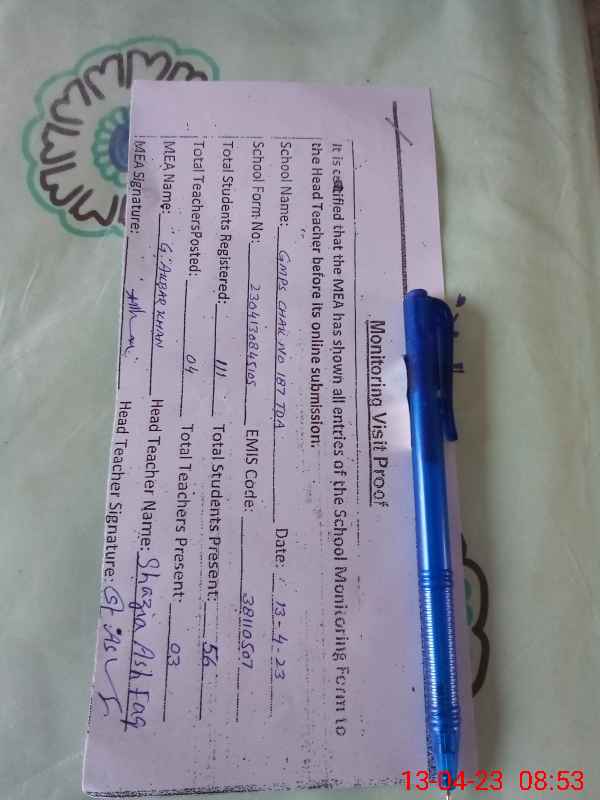 Monitoring Visit Proof
It is certified that the MEA has shown all entries of the School Monitoring Form to
the Head Teacher before its online submission.
School Name: GMPS CHAK NO 187 TDA Date: 13-4-23
School Form No: 230413084505 EMIS Code: 38110507
Total Students Registered: 111 Total Students Present: 56
Total TeachersPosted: 04 Total Teachers Present: 03
MEA Name: G. AKBAR KHAN Head Teacher Name: Shazia Ashfaq
MEA Signature: Head Teacher Signature:
13-04-23 08:53